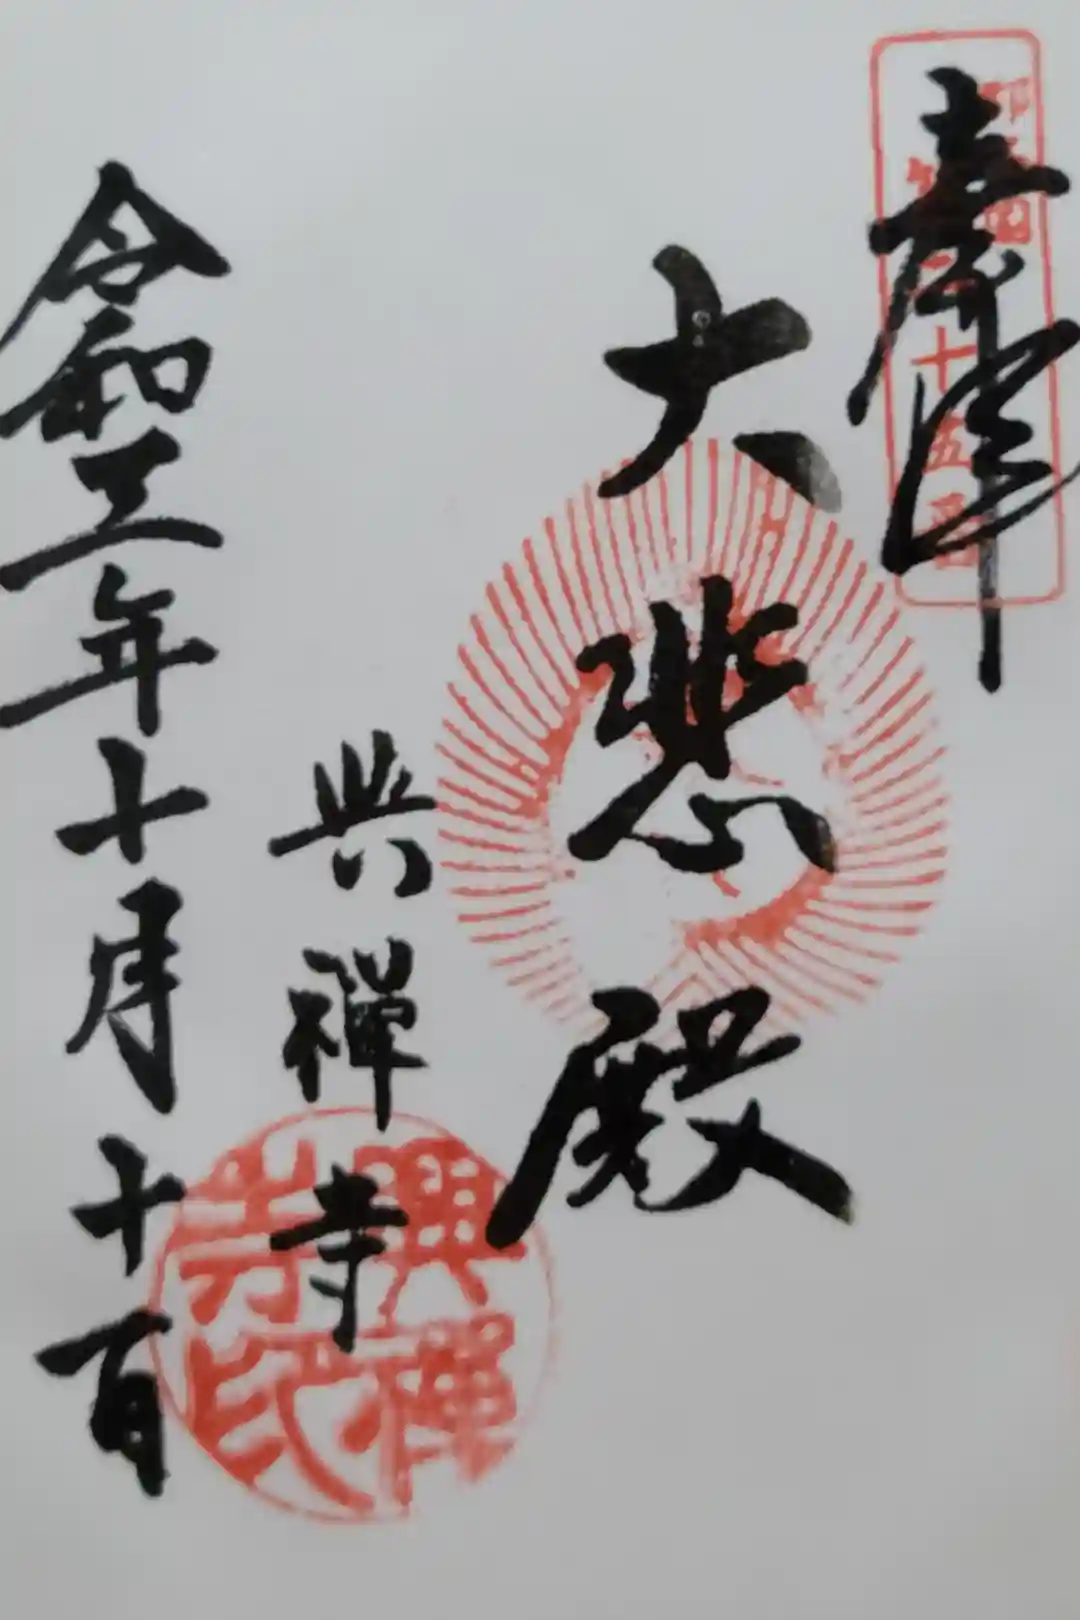 奉拝
第二十五番
大悲殿
興禪寺
興禪寺印
令和三年十月十一日